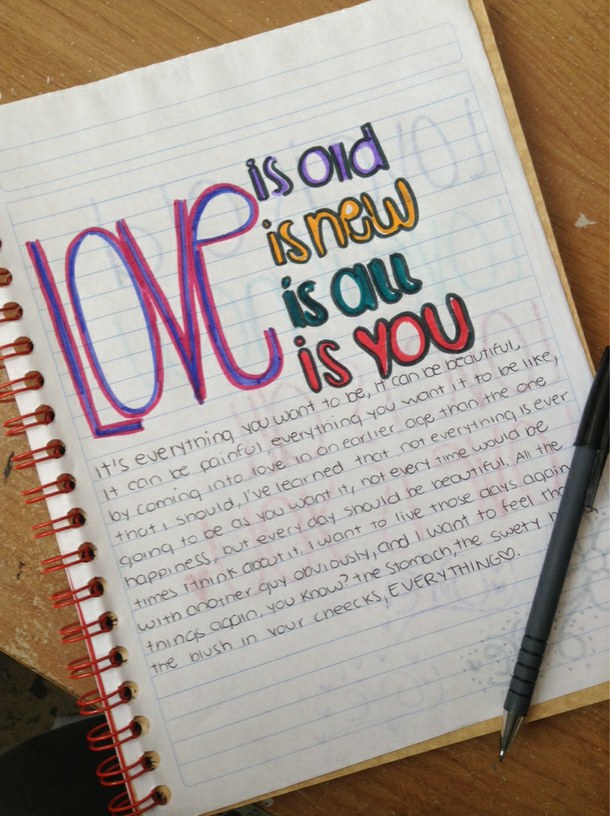 LOVE is old
is new
is all
is YOU
It's everything you want to be, it can be beautiful,
It can be painful everything you want it to be like,
by coming into love in an earlier age than the one
that I should, I've learned that not everything is ever
going to be as you want it, not every time would be
happiness, but every day should be beautiful. All the
times i think about it, I want to live those days again
with another guy obviously, and I want to feel tho
things again, you know? the stomach, the swety h
the blush in your cheecks, EVERYTHING♡.